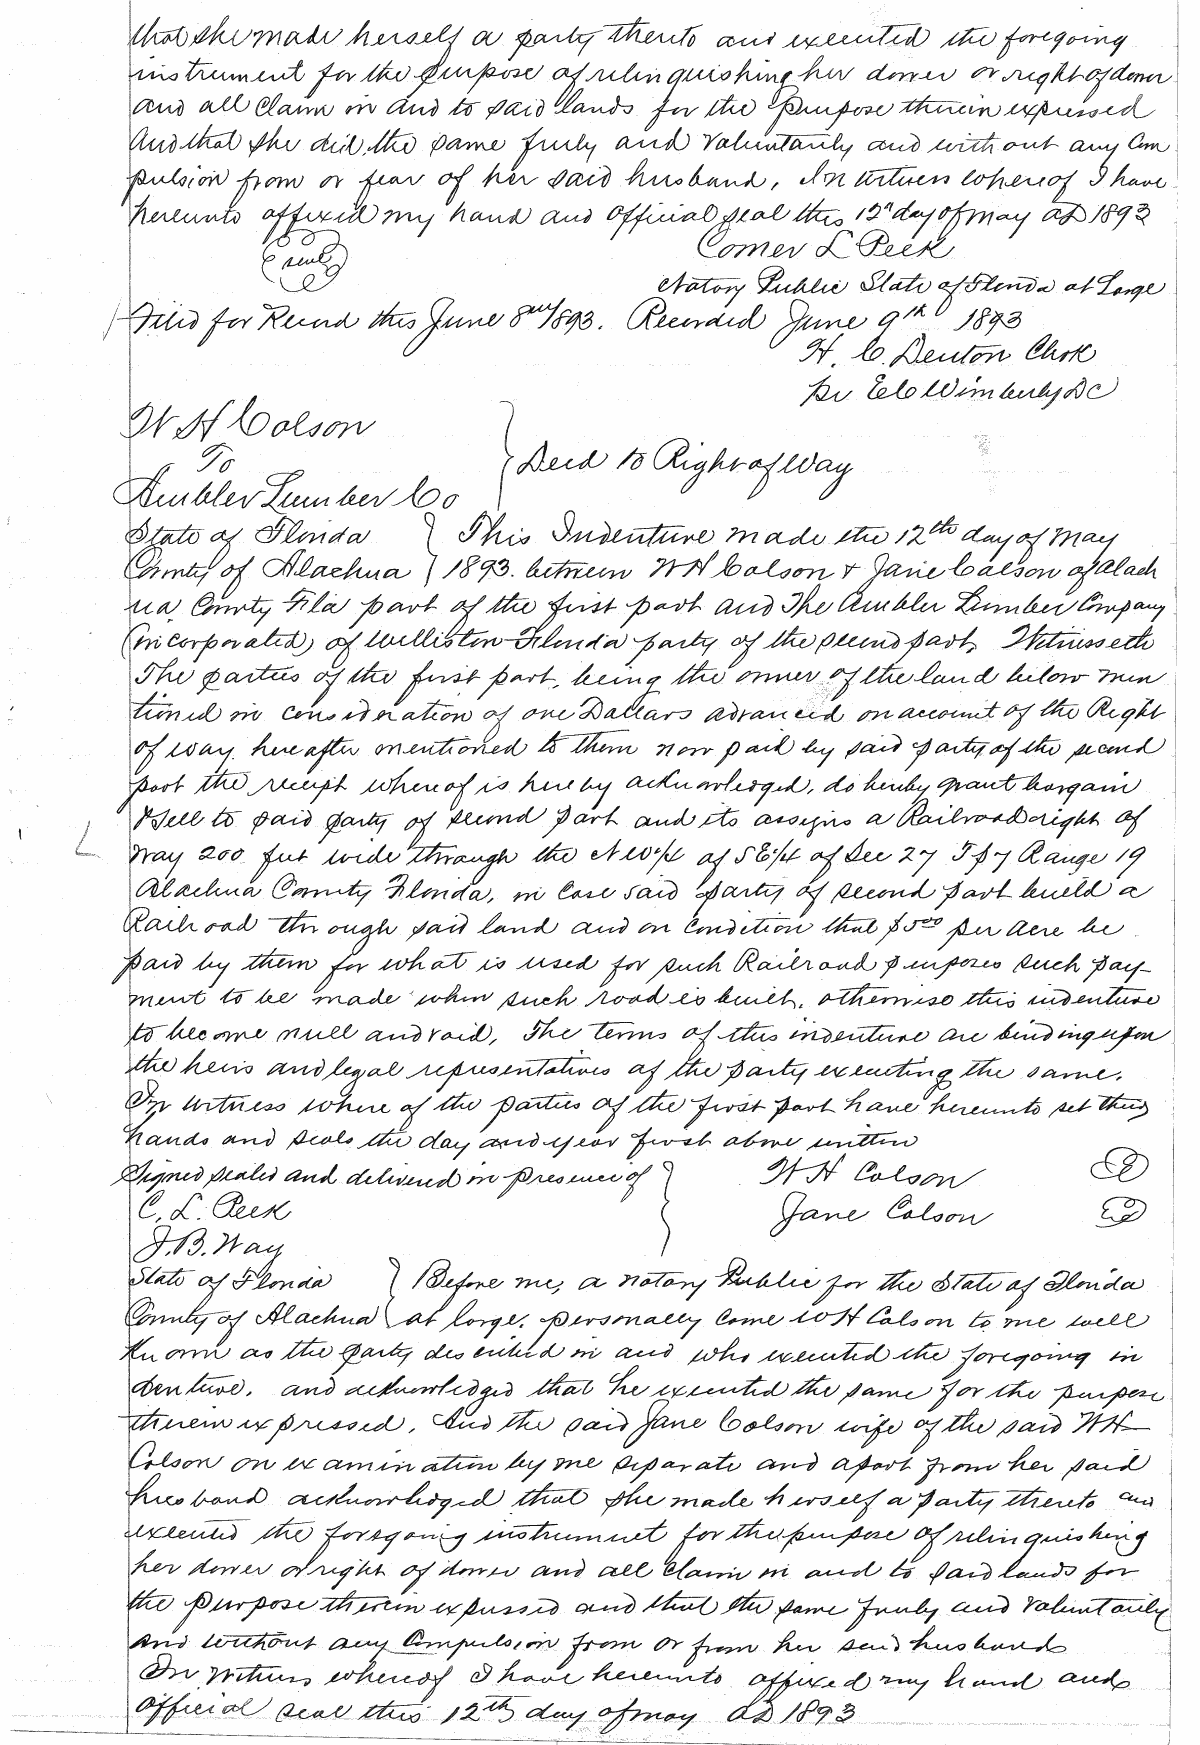 that she made herself a party thereto and executed the foregoing
instrument for the purpose of relinquishing her dower or right of dower
and all claim in and to said lands for the purpose therein expressed
And that she did the same freely and Voluntarily and without any Com
pulsion from or fear of her said husband, In witness whereof I have
hereunto affixed my hand and Official seal this 12th day of May AD 1893
(seal)
Comer L Peek
Notary Public State of Florida at Large
Filed for Record this June 8th 1893. Recorded June 9th 1893
H. C. Denton Clerk
Per E C Wimberly DC
W H Colson
To
Ambler Lumber Co
} Deed to Right of Way
State of Florida } This Indenture made the 12th day of May
County of Alachua } 1893. between W H Colson & Jane Colson of Alach
ua, County Fla part of the first part and The Ambler Lumber Company
(incorporated) of Williston Florida party of the second part, Witnesseth
The parties of the first part, being the owner of the land below men
tioned in consideration of one Dollars advanced on account of the Right
of way hereafter mentioned to them now paid by said party of the second
part the receipt whereof is hereby acknowledged, do hereby grant bargain
& sell to said party of second part and its assigns a Railroad right of
Way 200 feet wide through the NW1/4 of SE1/4 of Sec 27 T p 7 Range 19
Alachua County Florida, in case said party of second part build a
Railroad through said land and on condition that $5.00 per acre be
paid by them for what is used for such Railroad purposes such pay-
ment to be made when such road is built, otherwise this indenture
to become null and void, The terms of this indenture are binding upon
the heirs and legal representatives of the party executing the same.
In witness where of the parties of the first part have hereunto set their
hands and seals the day and year first above written
Signed sealed and delivered in presence of } W H Colson
C. L. Peek Jane Colson
J. B. Way
State of Florida } Before me, a notary Public for the State of Florida
County of Alachua } at large, personally come W H Colson to me well
Known as the party described in and who executed the foregoing in
denture, and acknowledged that he executed the same for the purpose
therein expressed, And the said Jane Colson wife of the said W H
Colson on examination by me separate and apart from her said
husband acknowledged that she made herself a party thereto and
executed the foregoing instrument for the purpose of relinquishing
her dower or right of dower and all claim in and to said lands for
the purpose therein expressed and that the same freely and Voluntarily
and without any Compulsion from or from her said husband
In witness whereof I have hereunto affixed my hand and
official seal this 12th day of may AD 1893